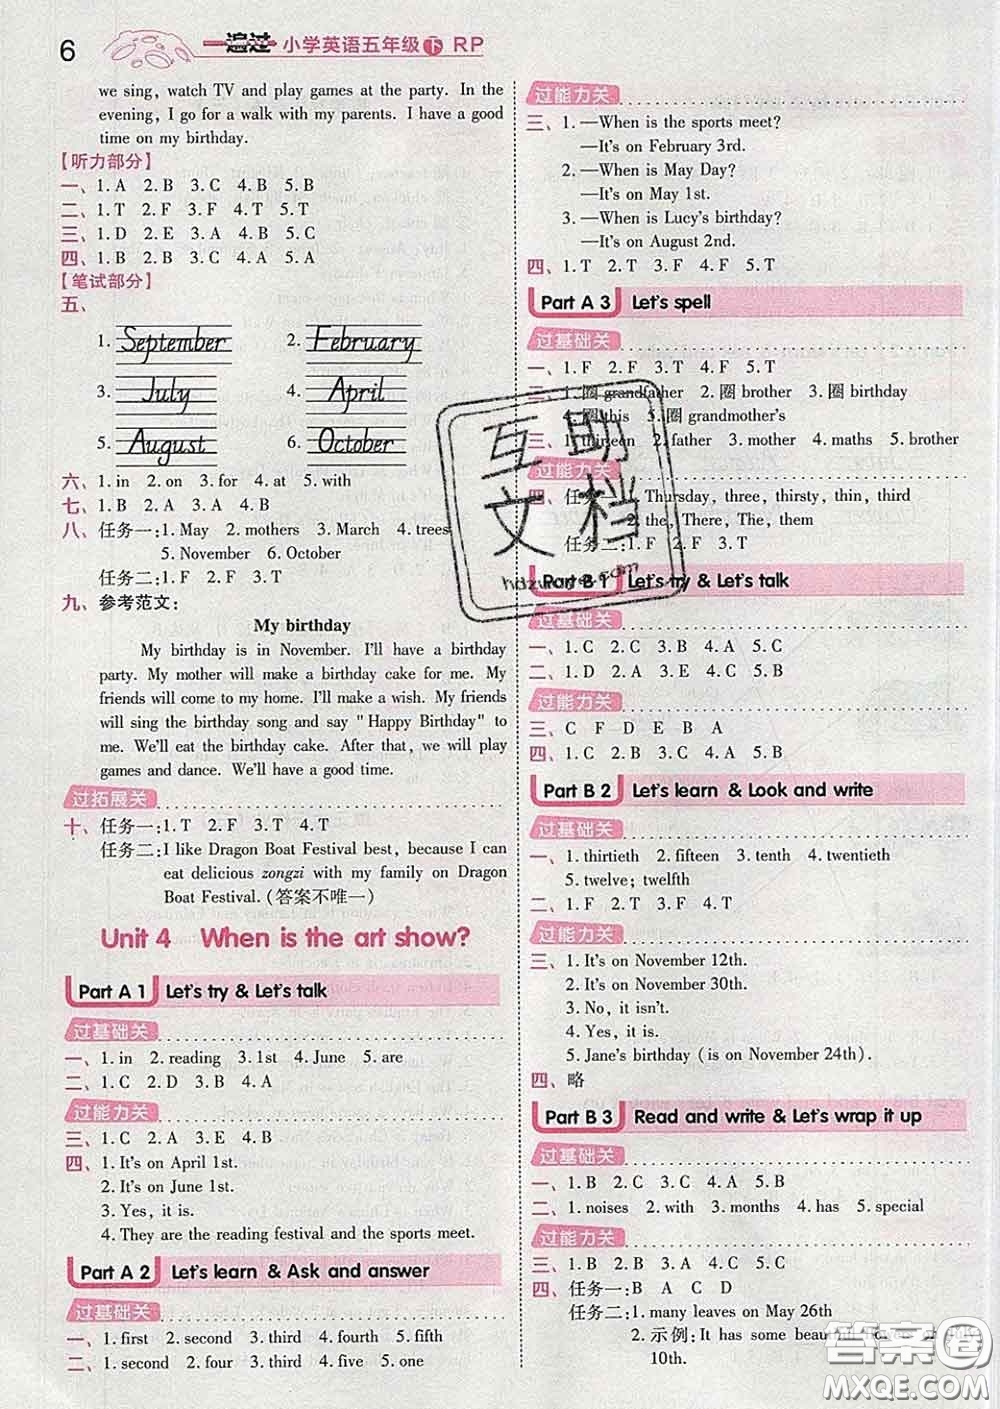 6 一遍过 小学英语五年级 下 RP
we sing, watch TV and play games at the party. In the
evening, I go for a walk with my parents. I have a good
time on my birthday.
【听力部分】
一、1. A 2. B 3. C 4. B 5. B
二、1. T 2. F 3. F 4. T 5. T
三、1. D 2. E 3. A 4. B 5. C
四、1. B 2. A 3. B 4. C 5. A
【笔试部分】
五、
1. September 2. February
3. July 4. April
5. August 6. October
六、1. in 2. on 3. for 4. at 5. with
七、1. B 2. A 3. A 4. B
八、任务一:1. May 2. mothers 3. March 4. trees
5. November 6. October
任务二:1. T 2. F 3. F 4. T
九、参考范文:
My birthday
My birthday is in November. I'll have a birthday
party. My mother will make a birthday cake for me. My
friends will come to my home. I'll make a wish. My friends
will sing the birthday song and say "Happy Birthday" to
me. We'll eat the birthday cake. After that, we will play
games and dance. We'll have a good time.
过拓展关
十、任务一:1. T 2. F 3. T 4. T
任务二:I like Dragon Boat Festival best, because I can
eat delicious zongzi with my family on Dragon
Boat Festival. (答案不唯一)
Unit 4 When is the art show?
Part A 1 Let's try & Let's talk
过基础关
一、1. in 2. reading 3. 1st 4. June 5. are
二、1. C 2. D 3. B 4. A
过能力关
三、1. C 2. A 3. E 4. B
四、1. It's on April 1st.
2. It's on June 1st.
3. Yes, it is.
4. They are the reading festival and the sports meet.
Part A 2 Let's learn & Ask and answer
过基础关
一、1. first 2. second 3. third 4. fourth 5. fifth
二、1. second 2. four 3. third 4. five 5. one
过能力关
三、1. —When is the sports meet?
—It's on February 3rd.
2. —When is May Day?
—It's on May 1st.
3. —When is Lucy's birthday?
—It's on August 2nd.
四、1. T 2. T 3. F 4. F 5. T
Part A 3 Let's spell
过基础关
一、1. F 2. F 3. T 4. F 5. T
二、1. 圈 grandfather 2. 圈 brother 3. 圈 birthday
4. 圈 this 5. 圈 grandmother's
三、1. thirteen 2. father 3. mother 4. maths 5. brother
过能力关
四、任务一:1. Thursday, three, thirsty, thin, third
2. the, There, The, them
任务二:1. F 2. F 3. T
Part B 1 Let's try & Let's talk
过基础关
一、1. C 2. C 3. B 4. A 5. C
二、1. D 2. A 3. E 4. C 5. B
过能力关
三、C F D E B A
四、1. C 2. B 3. C 4. A 5. B
Part B 2 Let's learn & Look and write
过基础关
一、1. thirtieth 2. fifteen 3. tenth 4. twentieth
5. twelve; twelfth
二、1. F 2. T 3. F 4. T
过能力关
三、1. It's on November 12th.
2. It's on November 30th.
3. No, it isn't.
4. Yes, it is.
5. Jane's birthday (is on November 24th).
四、略
Part B 3 Read and write & Let's wrap it up
过基础关
一、1. B 2. C 3. C 4. A 5. B
二、1. noises 2. with 3. months 4. has 5. special
过能力关
三、1. B 2. B 3. A 4. B 5. B
四、任务一:B A C D
任务二:1. many leaves on May 26th
2. 示例:It has some beautiful
10th.
互助文档
答案圈
MXQE.COM